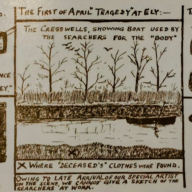 The First of April "Tragedy" at Ely:—
The Cresswells, showing boat used by
the searchers for the "body"
X Where "deceased's" clothes were found.
Owing to late arrival of our special artist
on the scene we cannot give a sketch of the
searchers at work.